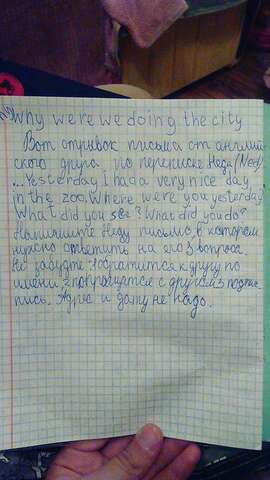 Why were we doing the city
Вот отрывок письма от англий
ского друга по переписке Неда (Ned)
...Yesterday I had a very nice day
in the zoo. Where were you yesterday
What did you see? What did you do?
Напишите Неду письмо, в котором
нужно ответить на его 3 вопроса.
Не забудте: 1 обратится к другу по
имени 2 попрощатся с другом 3 подпи
пись. Адрес и дату не надо.